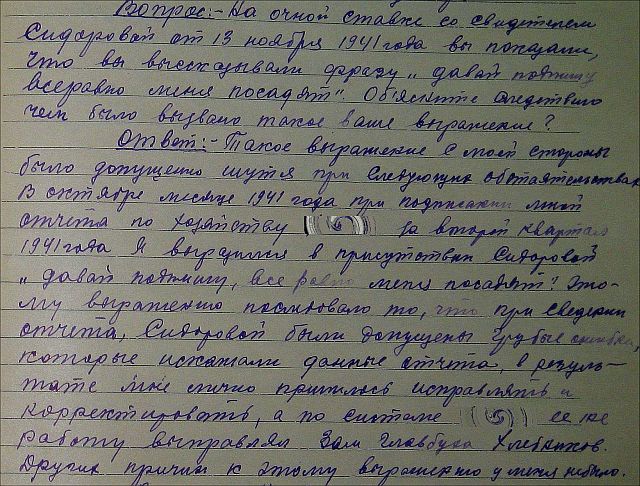 Вопрос:- На очной ставке со свидетелем
Сидоровой от 13 ноября 1941 года вы показали,
что вы высказывали фразу „давай подпишу
всеравно меня посадят". Объясните следствию
чем было вызвано такое ваше выражение?
Ответ:- Такое выражение с моей стороны
было допущенно шутя при следующих обстоятельствах
В октябре месяце 1941 года при подписании мной
отчета по хозяйству за второй квартал
1941 года Я выразился в присутствии Сидоровой
„давай подпишу, все равно меня посадят". Это-
му выражению послужовало то, что при сведении
отчета, Сидоровой были допущены грубые ошибки,
которые искажали данные отчета, в резуль-
тате мне лично пришлось исправлять и
корректировать, а по системе ее же
работу выправлял Зам Главбуха Хлебников.
Других причин к этому выражению у меня небыло.